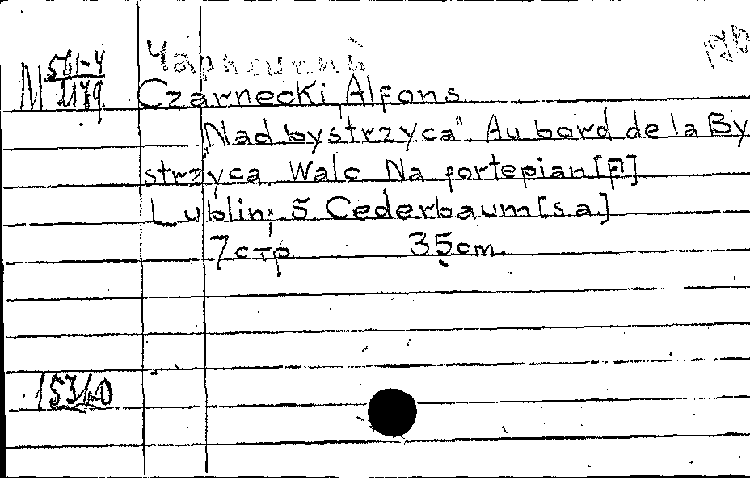 Чарнецкий
М 561-4
1179
Czarnecki Alfons
"Nad bystrzyca". Au bord de la By
strzyca. Walc Na fortepian [P].
Lublin; S. Cederbaum [s.a.]
7 стр 35 cm.
153/40